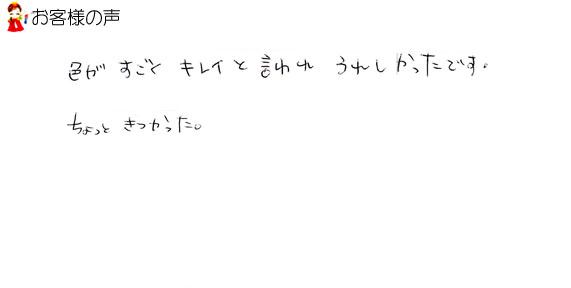 お客様の声
色が すごく キレイと 言われ うれしかったです。
ちょっと きつかった。